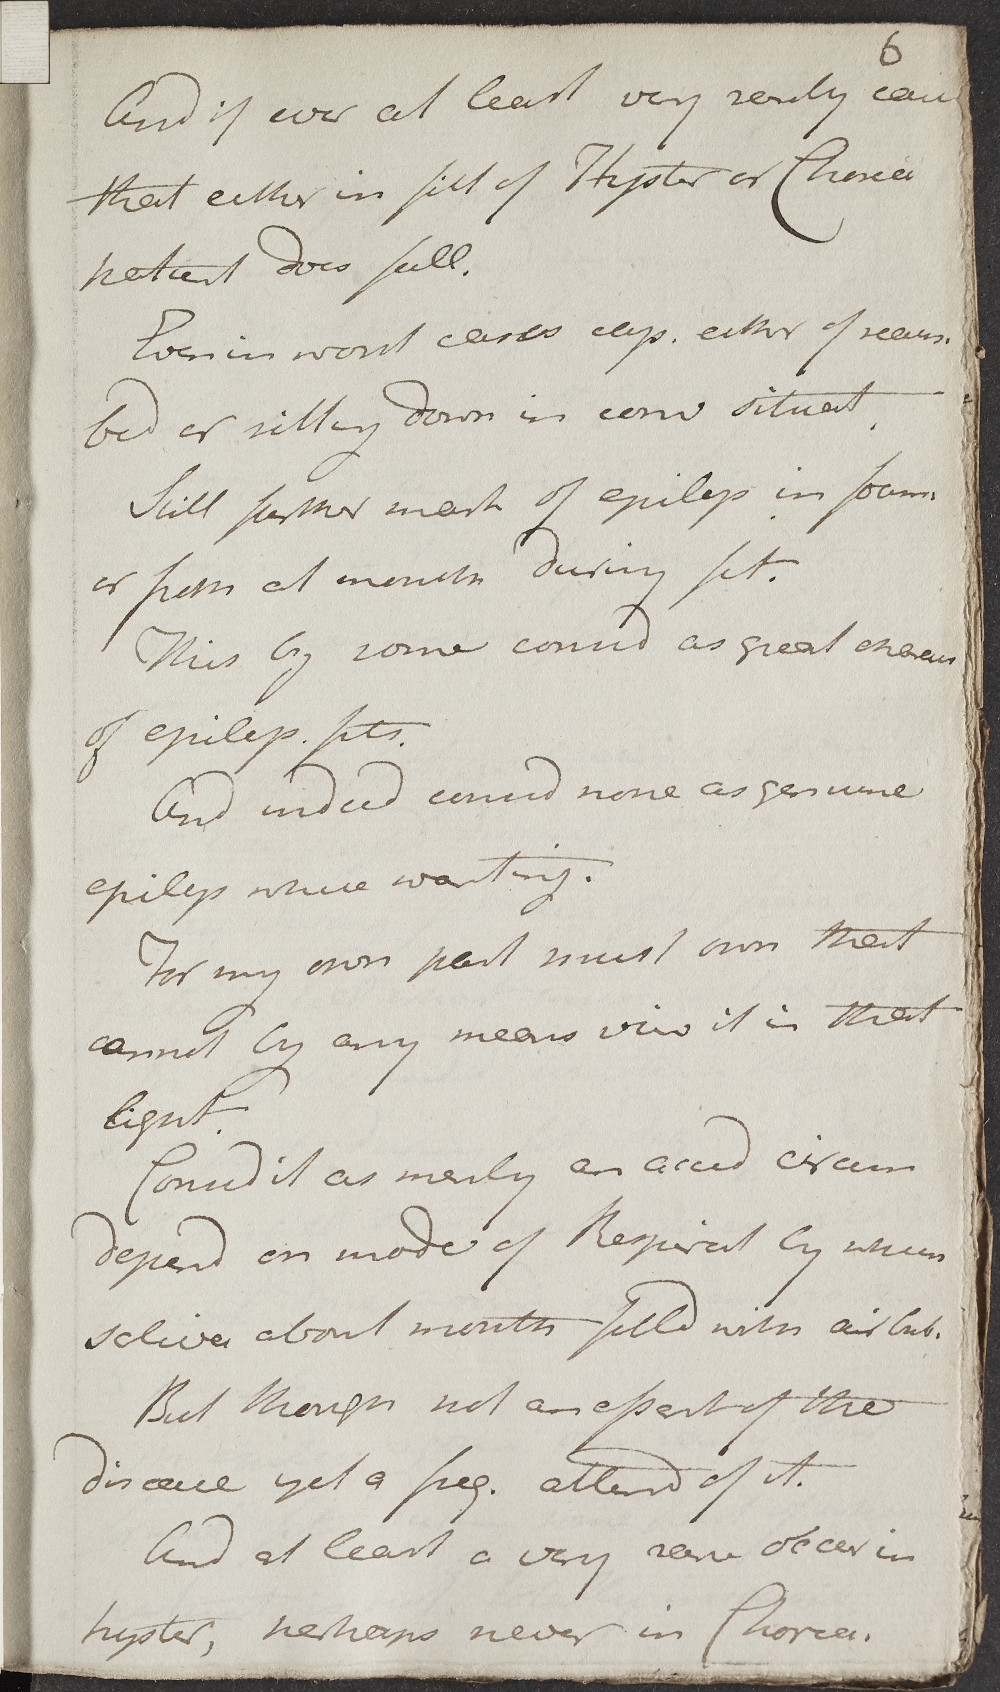 6
And if ever at least very rarely
that either in fitt of Hyster or Chorea
patient does fall.
Even in worst cases either of
bed or sitting down in conv situat
Still further mark of epileps in foam
or froth at mouth during fit.
This by some consid as great
of epilep. fits.
And indeed consid none as genuine
epileps where wanting.
For my own part must own that
cannot by any means view it in that
light.
Consid it as merly an accid circum
depend on mode of Respirat by when
saliva about mouth filld with air bub.
But though not an part of the
disease yet a freq. attend of it.
And at least a very rare occur in
hyster, perhaps never in Chorea.